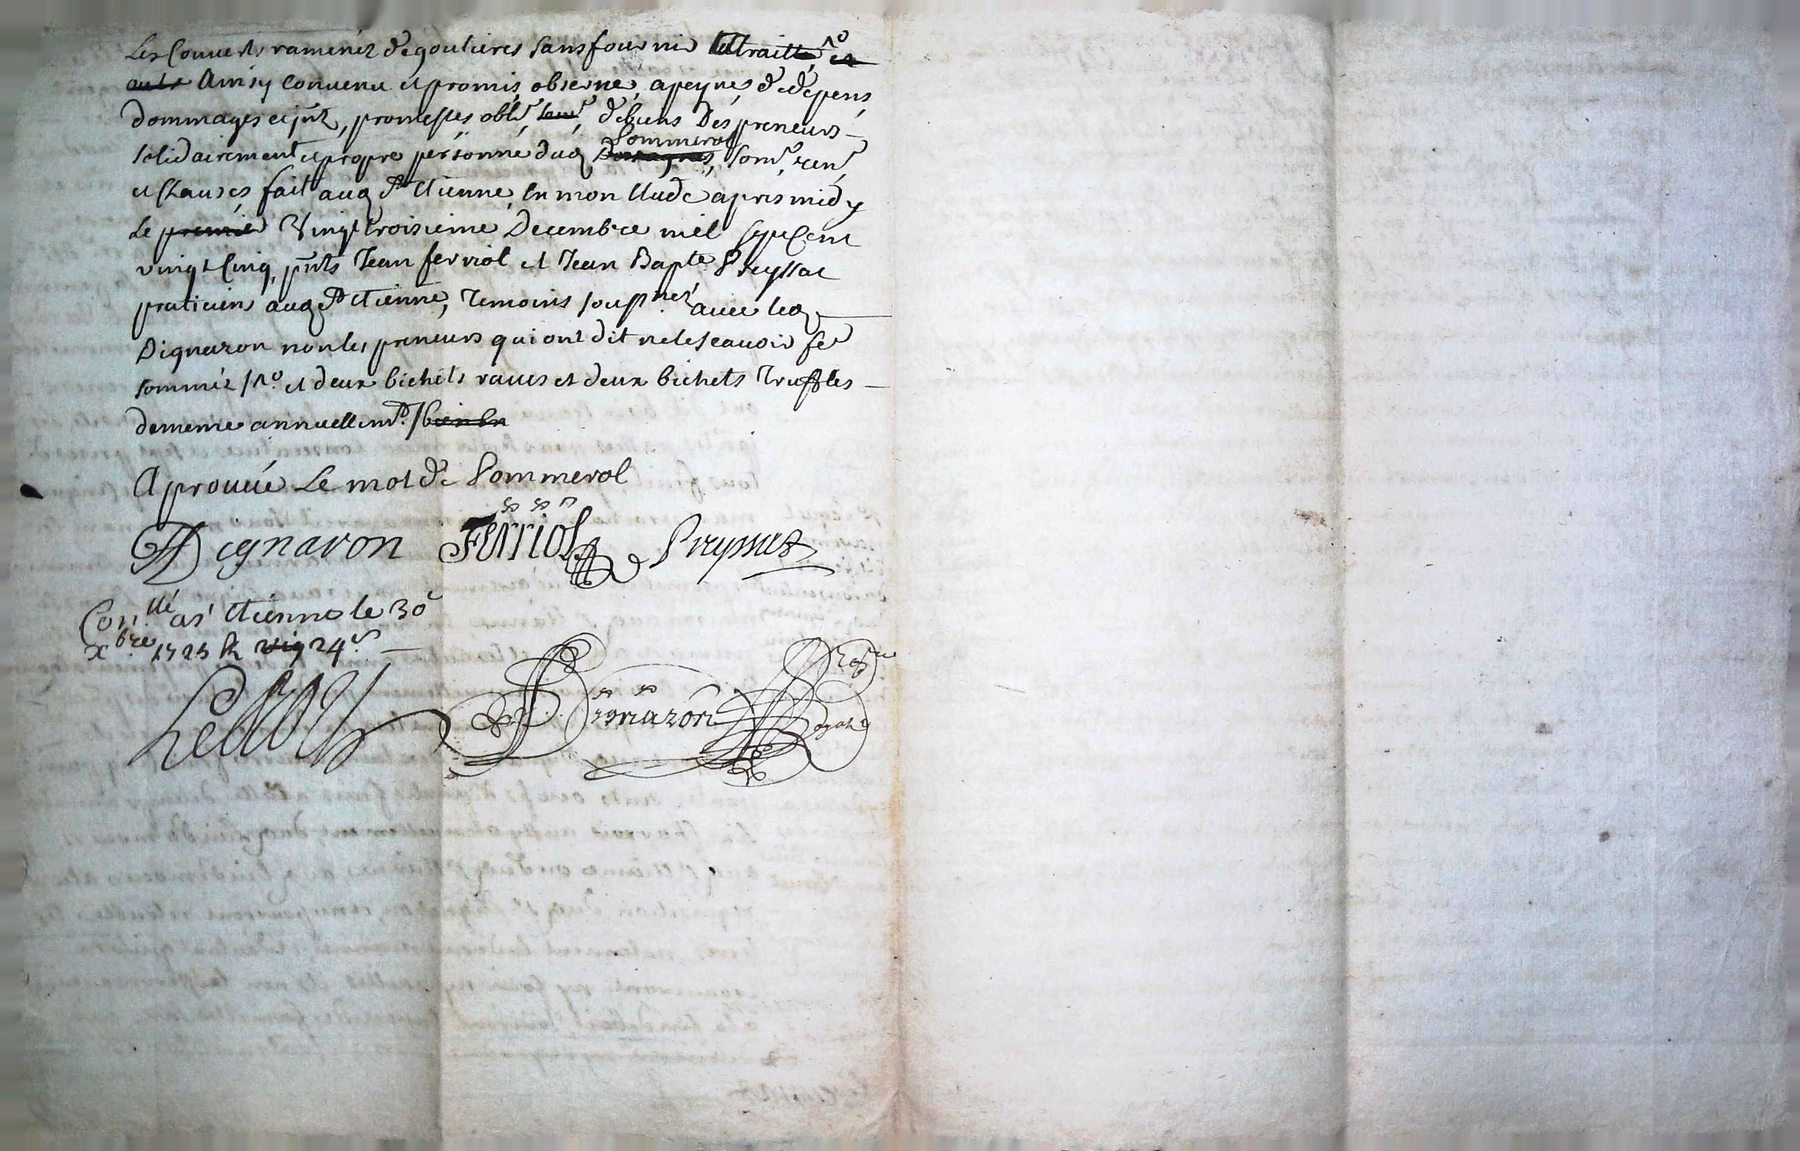 Les Couverts ramenés degoutieres sans fournir
Ainsy convenu et promis observé, a peyne de depens,
dommages et jnt, promesses obl. de biens Des preneurs
solidairement et propre personne dud Sommerol, Som. ren.
et Clauses fait aud St Etienne, En mon Etude apres midy
Le premier Vingt troisieme Decembre mil sept Cent
vingt Cinq, pnts Jean ferriol et Jean Bapte Peyssac
praticiens aud St Etienne, Temoins soussnez avec led
Dignaron non les preneurs qui ont dit ne le scavoir fe
sommez et deux bichets raves et deux bichets Truffles
de meme annuellemt.
Aprouvé Le mot de Sommerol
Dignaron Ferriol
Con.llé a St Etienne le 30
xbre 1725 24